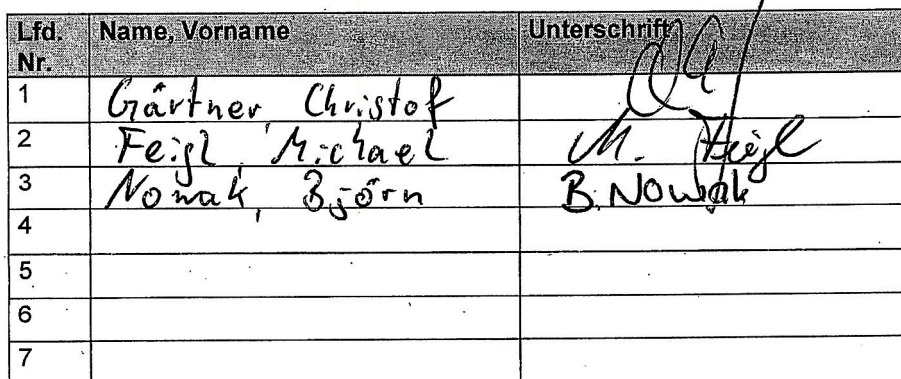 Lfd. Nr. Name, Vorname Unterschrift
1 Gärtner, Christof
2 Feigl, Michael M. Feigl
3 Nowak, Björn B. Nowak
4
5
6
7